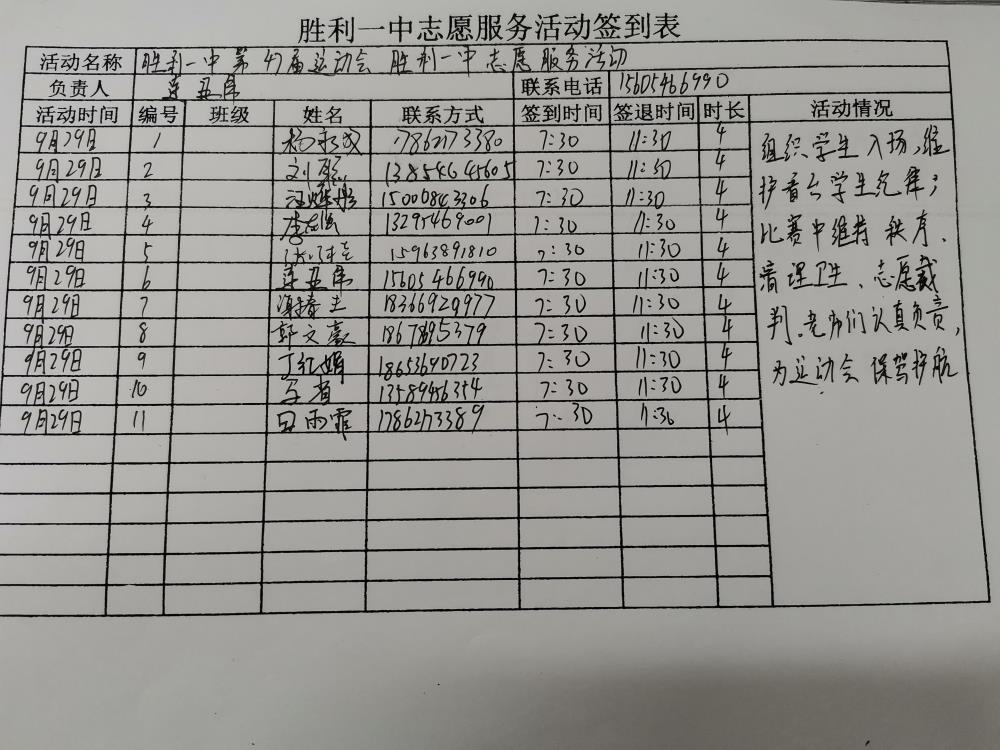 胜利一中志愿服务活动签到表
活动名称 胜利一中第47届运动会 胜利一中志愿服务活动
负责人 亚席 联系电话 15605466990
活动时间 编号 班级 姓名 联系方式 签到时间 签退时间 时长 活动情况
9月29日 1 17862173380 7:30 11:30 4
9月29日 2 刘 13854645605 7:30 11:30 4
9月29日 3 15000843306 7:30 11:30 4
9月29日 4 李 13295469001 7:30 11:30 4
9月29日 5 15963891810 7:30 11:30 4
9月29日 6 亚席 15605466990 7:30 11:30 4
9月29日 7 18366929977 7:30 11:30 4
9月29日 8 郭文豪 18678195379 7:30 11:30 4
9月29日 9 丁红娟 18653640723 7:30 11:30 4
9月29日 10 13589456354 7:30 11:30 4
9月29日 11 吕雨霏 17862173389 7:30 11:30 4
组织学生入场,维
护看台学生纪律;
比赛中维持秩序、
清理卫生、志愿裁
判。老师们认真负责,
为运动会保驾护航